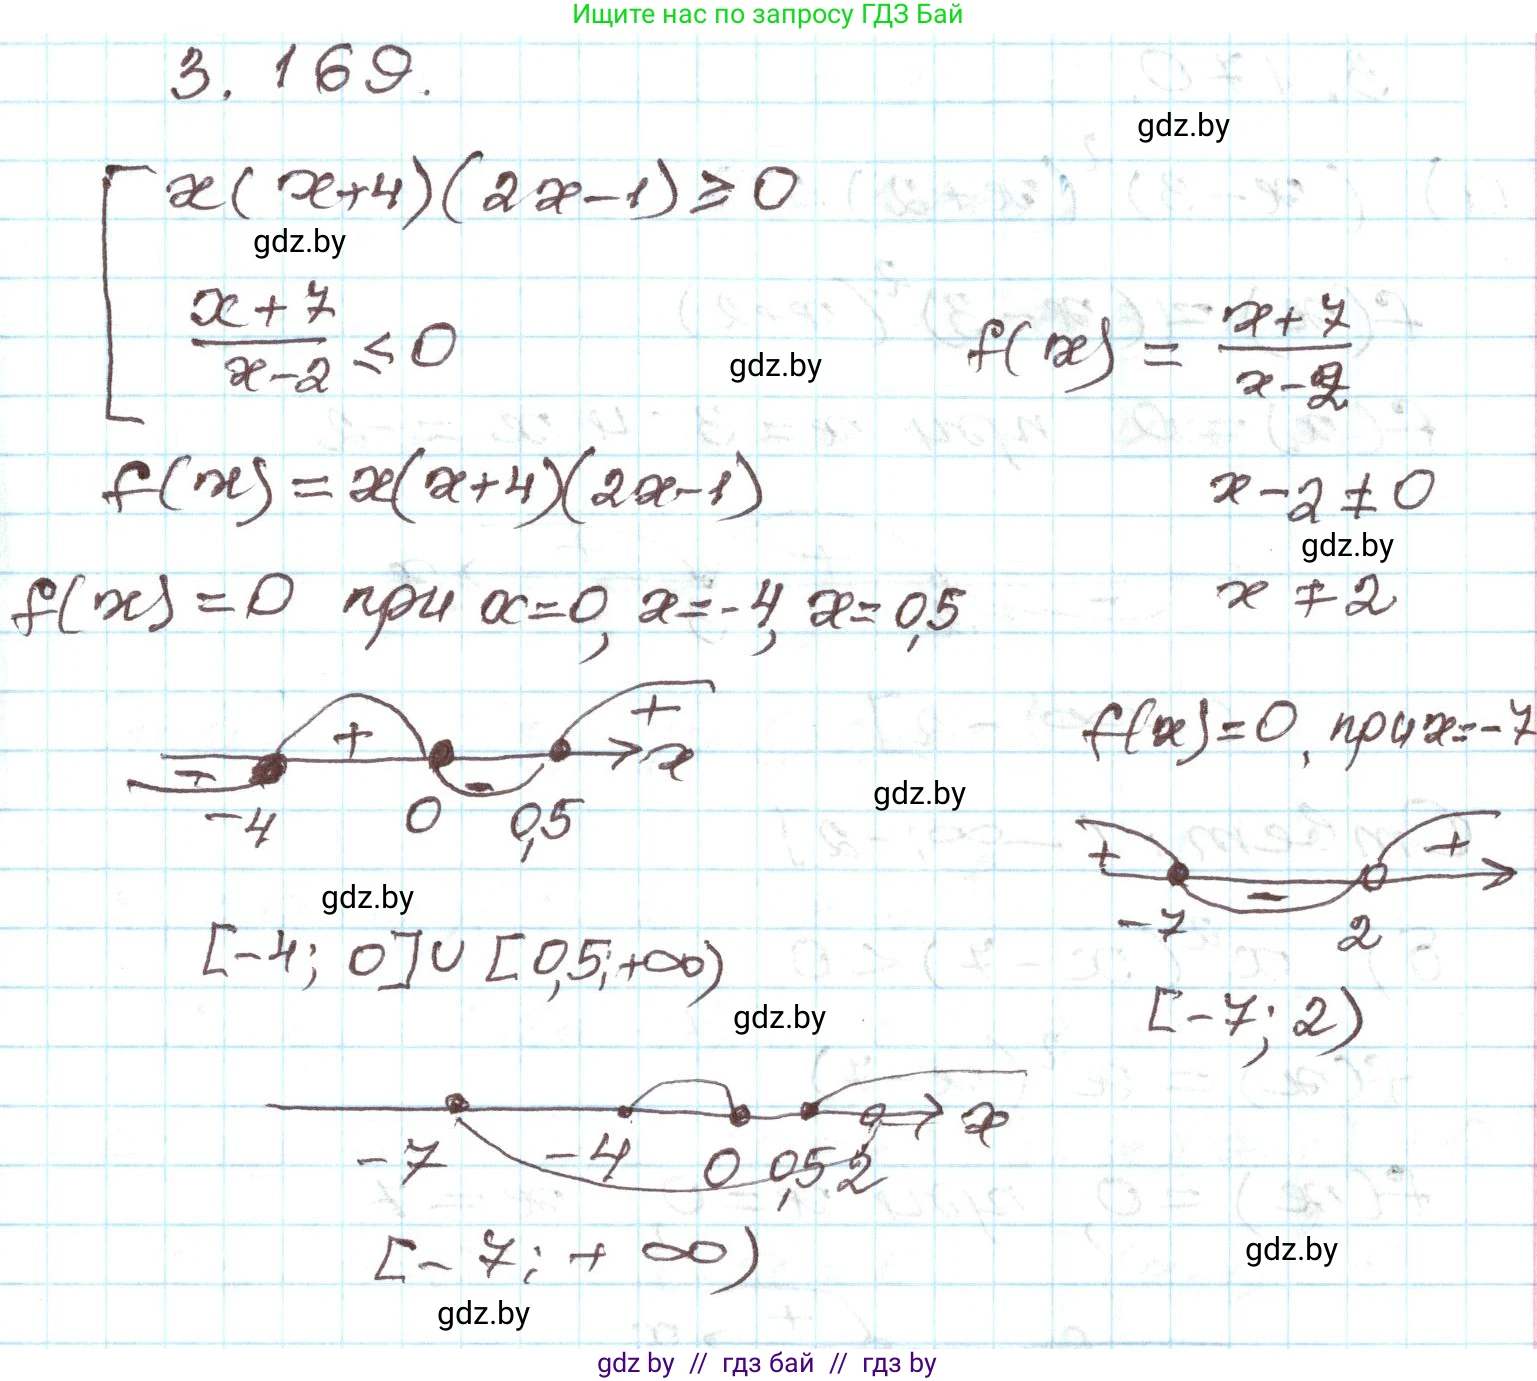 Ищите нас по запросу ГДЗ Бай
3. 169.
gdz.by
x(x+4)(2x-1)≥0
gdz.by
x+7
x-2 ≤0
gdz.by
f(x) = x+7
x-2
f(x)=x(x+4)(2x-1)
x-2≠0
gdz.by
f(x)=0 при x=0, x=-4, x=0,5
x≠2
- + - + x
-4 0 0,5
f(x)=0, при x=-7
gdz.by
+ - +
-7 2
gdz.by
[-4; 0]∪[0,5;+∞)
[-7; 2)
gdz.by
x
-7 -4 0 0,5 2
[-7; +∞)
gdz.by
gdz.by
gdz by // гдз бай // гдз by